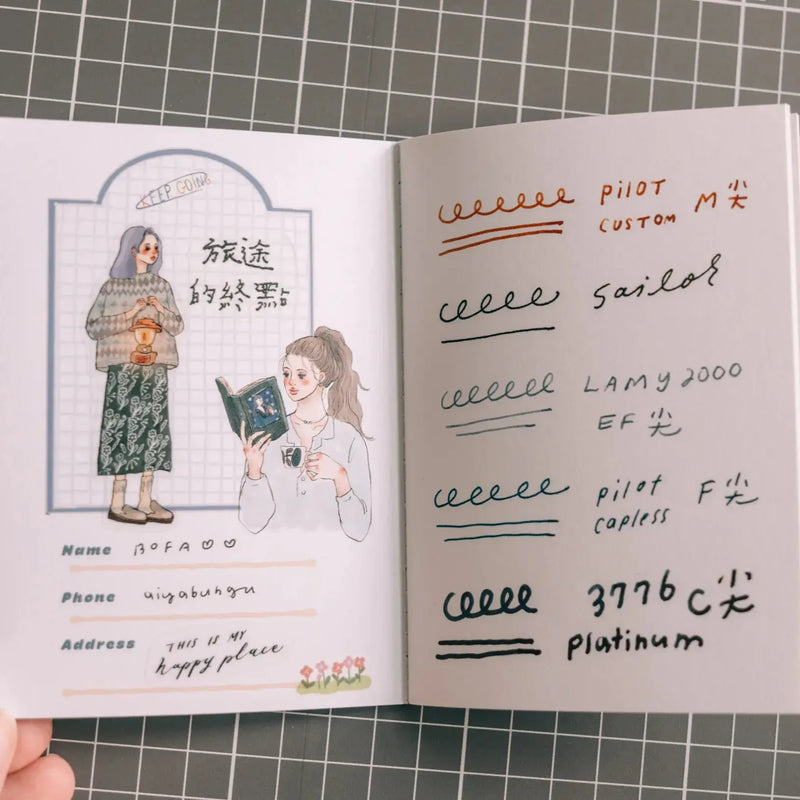 KEEP GOING
旅途
的終點
Name BOFA♡♡
Phone aiyabungu
Address THIS IS MY
happy place
PILOT
CUSTOM M尖
Sailor
LAMY 2000
EF尖
pilot
capless F尖
3776 C尖
platinum